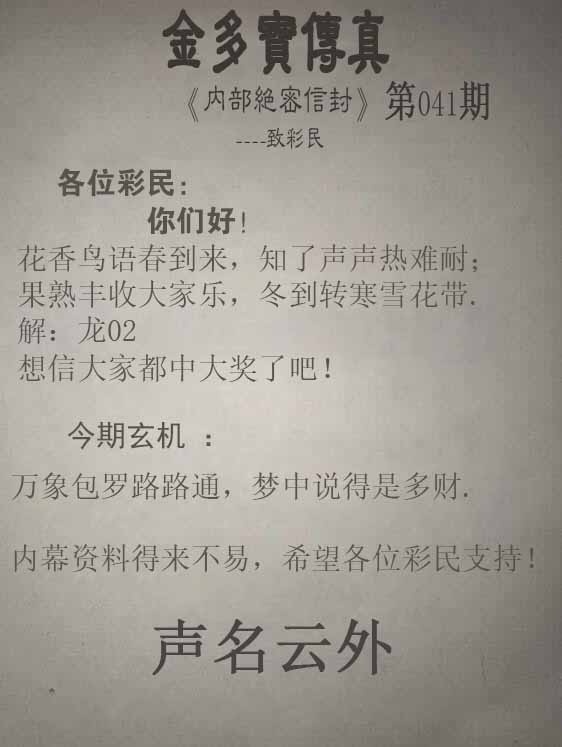 金多寶傳真
《内部絶密信封》第041期
----致彩民
各位彩民:
你们好!
花香鸟语春到来，知了声声热难耐;
果熟丰收大家乐，冬到转寒雪花带.
解：龙02
想信大家都中大奖了吧!
今期玄机 ：
万象包罗路路通，梦中说得是多财.
内幕资料得来不易，希望各位彩民支持!
声名云外